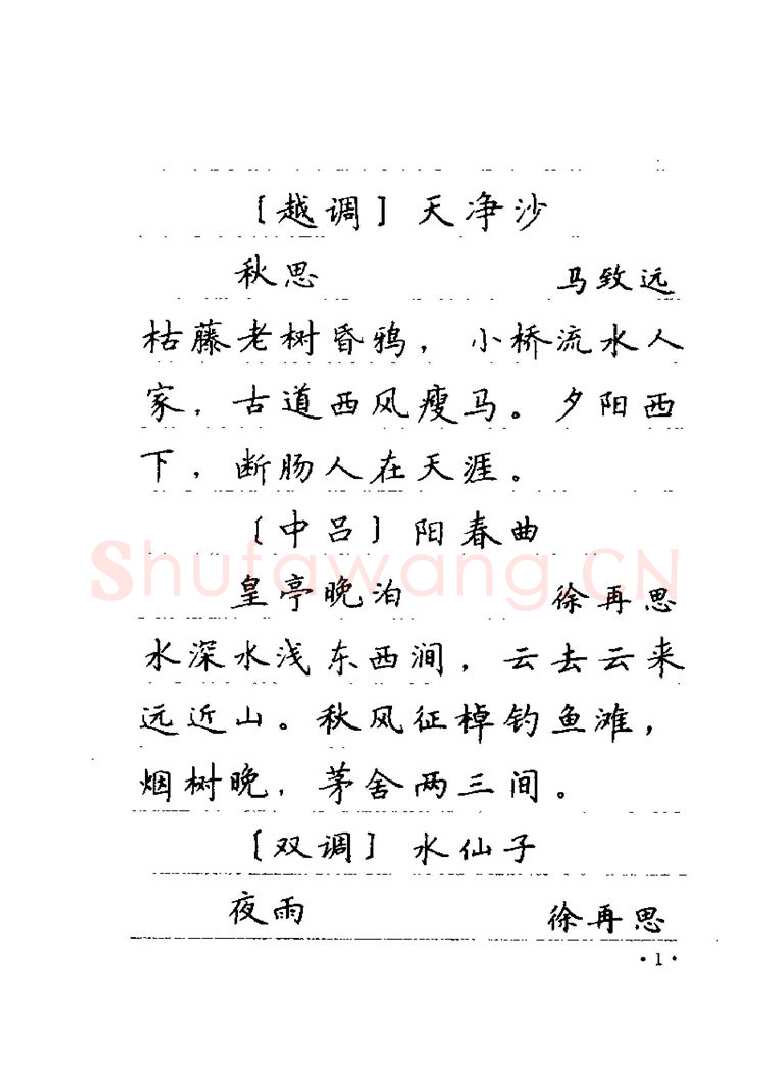 ［越调］天净沙
秋思 马致远
枯藤老树昏鸦，小桥流水人
家，古道西风瘦马。夕阳西
下，断肠人在天涯。
［中吕］阳春曲
皇亭晚泊 徐再思
水深水浅东西涧，云去云来
远近山。秋风征棹钓鱼滩，
烟树晚，茅舍两三间。
［双调］水仙子
夜雨 徐再思
·1·
Shufawang.CN